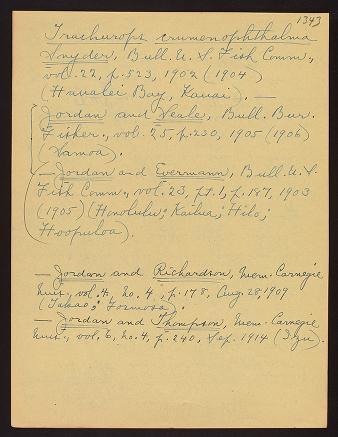 1343
Trachurops crumenophthalma
Snyder, Bull. U. S. Fish Comm.,
vol. 22, p. 523, 1902 (1904)
(Hanalei Bay, Kauai). —
Jordan and Seale, Bull. Bur.
Fisher., vol. 25, p. 230, 1905 (1906)
(Samoa).
— Jordan and Evermann, Bull. U. S.
Fish Comm., vol. 23, pt. 1, p. 187, 1903
(1905) (Honolulu; Kailua; Hilo;
Hoopuloa).
— Jordan and Richardson, Mem. Carnegie
Mus., vol. 4, no. 4, p. 178, Aug. 28, 1909
(Takao; Formosa).
— Jordan and Thompson, Mem. Carnegie
Mus., vol. 6, no. 4, p. 240, Sep. 1914 (Izu).